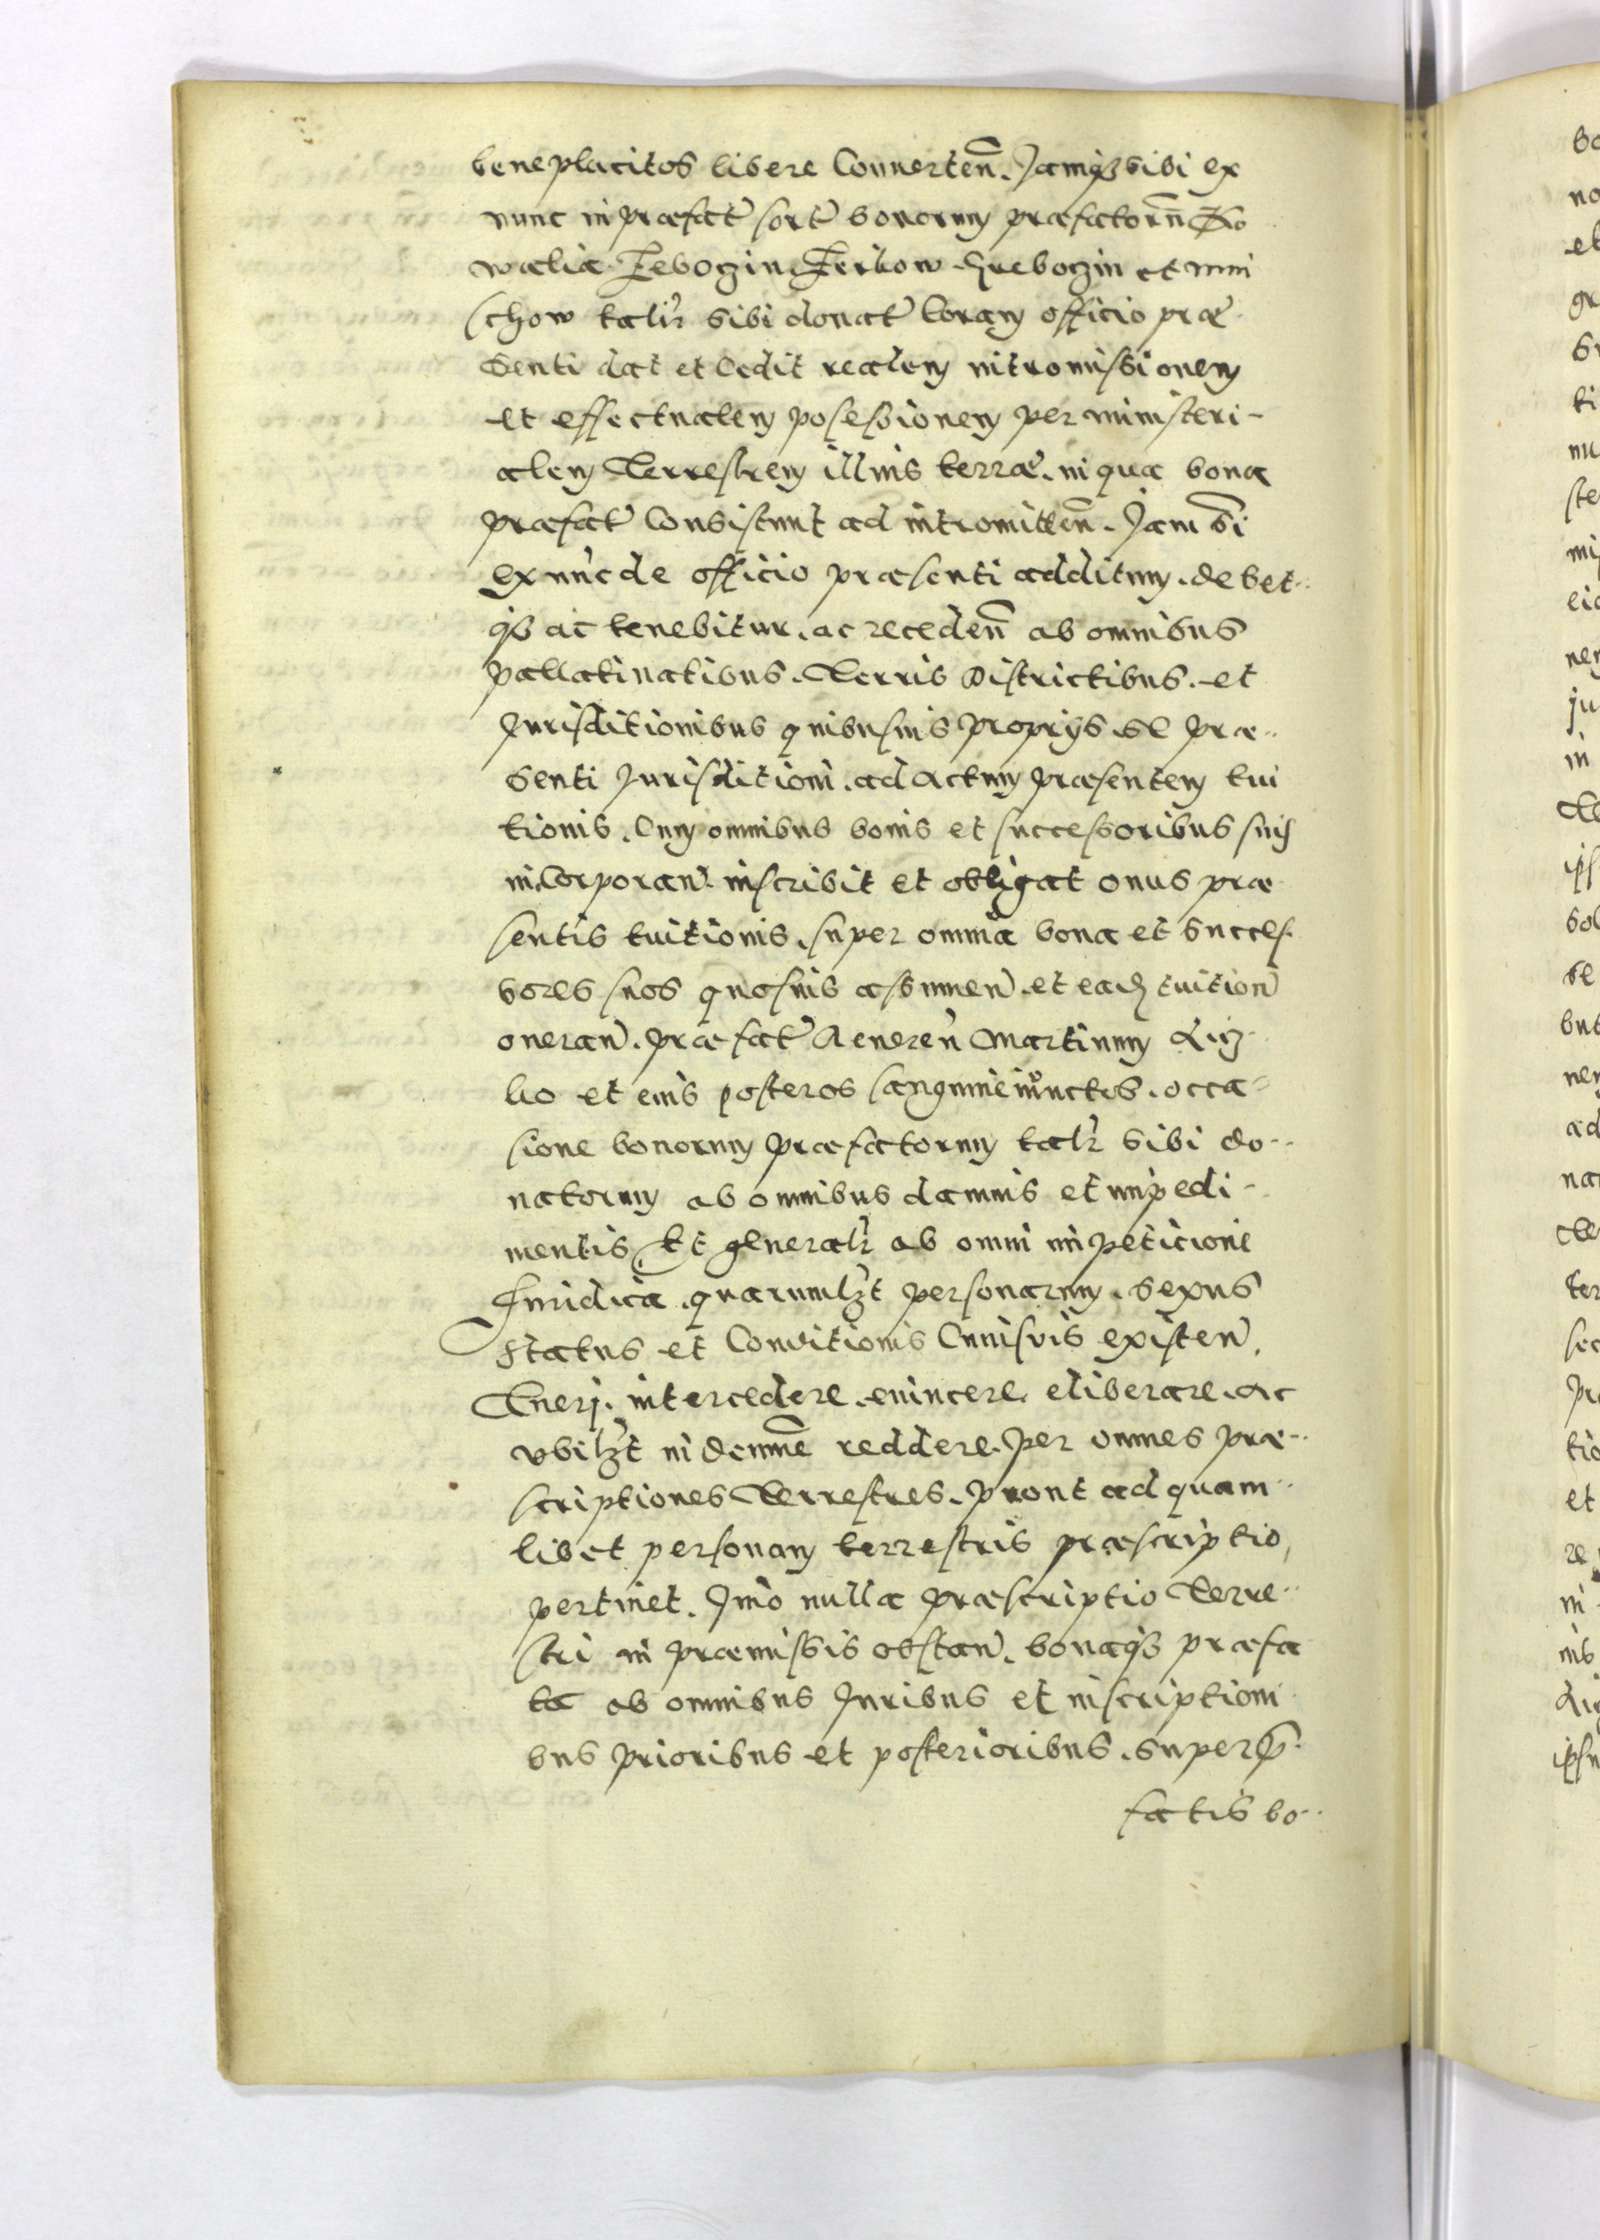 beneplacitos libere Conuerten̄. Jamq̃ȝ sibi ex
nunc in præfat̃ sort̃ bonorum præfatorū Ko
walia Zebogin Zerkow Grebozin et mni
schow talr̃ sibi donat̃ Coram officio præ
senti dat et Cedit realem intromissionem
et effectualem possessionem per ministeri-
alem Terrestrem illius terræ. in qua bona
præfat̃ Consistunt ad intromitten̄. Jam sibi
ex nūc de officio præsenti additum. debet-
qȝ ac tenebitur. ac receden̄ ab omnibus
pallatinatibus. Terris Districtibus. et
Jurisditionibus quibusuis proprijs. se præ-
senti Jurisditioni. ad Actum præsentem tui
tionis. Cum omnibus bonis et successoribus suis
inCorporan̄. inscribit et obligat onus præ
sentis tuitionis. super omnia bona et succes
sores suos quosuis assumen̄. et eadem tuition̄
oneran̄. præfat̃ Generen̄ Martinum Lig-
et eius posteros sanguine iunctos. occa-
sione bonorum præfatorum talr̃ sibi do-
natorum ab omnibus damnis et impedi-
mentis. Et generalr̃ ab omni impeticione
Juridica. quarumlȝt personarum. sexus
status et Conditionis Cuiusuis existen̄.
Tueri. intercedere. euincere eliberare. ac
vbilȝt indemnē reddere. per omnes præ-
scriptiones Terrestres. prout ad quam-
libet personam terrestris præscriptio
pertinet. Jmo nulla præscriptio Terre-
stri in præmissis obstan̄. bonaqȝ præfa
ta ab omnibus Juribus et inscriptioni
bus prioribus et posterioribus. super p̃-
fatis bo-